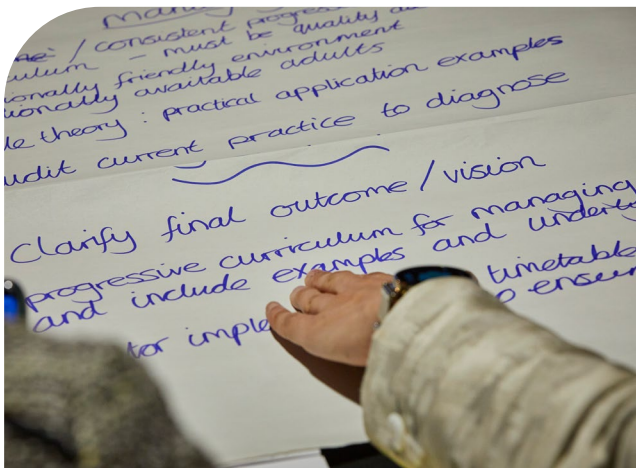 / consistent progre
culum - must be quality
onally friendly environment
ionally available adults
le theory : practical application examples
udit current practice to diagnose
Clarify final outcome / vision
progressive curriculum for managing
and include examples and underly
timetable
for imple o ensur